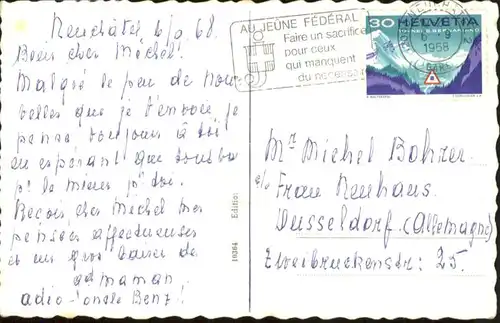 Neuchâtel 6/9. 68.
Bien cher Michel!
Malgré le peu de nou-
velles que je t'envoie je
pense toujours à toi
en espérant que tout va
pr le mieux pr toi.
Reçois cher Michel mes
pensées affectueuses
et un gros baiser de
maman
adio - oncle Benz!
10364 Editio:
AU JEUNE FÉDÉRAL
Faire un sacrifice
pour ceux
qui manquent
du nécessaire
30 HELVETIA
TUNNEL S. BERNARDINO
1968
Mr Michel Bohrer
c/o Frau Neuhaus
Dusseldorf (Allemagne)
Zweibruckenstr: 25.